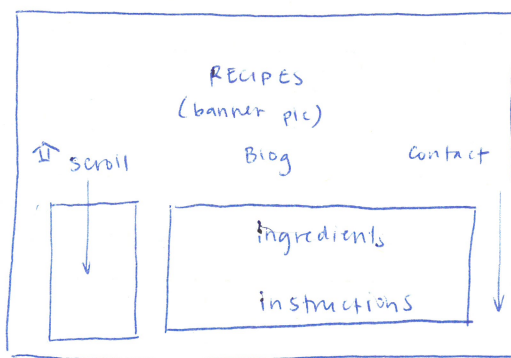 RECIPES
(banner pic)
scroll Blog Contact
ingredients
instructions